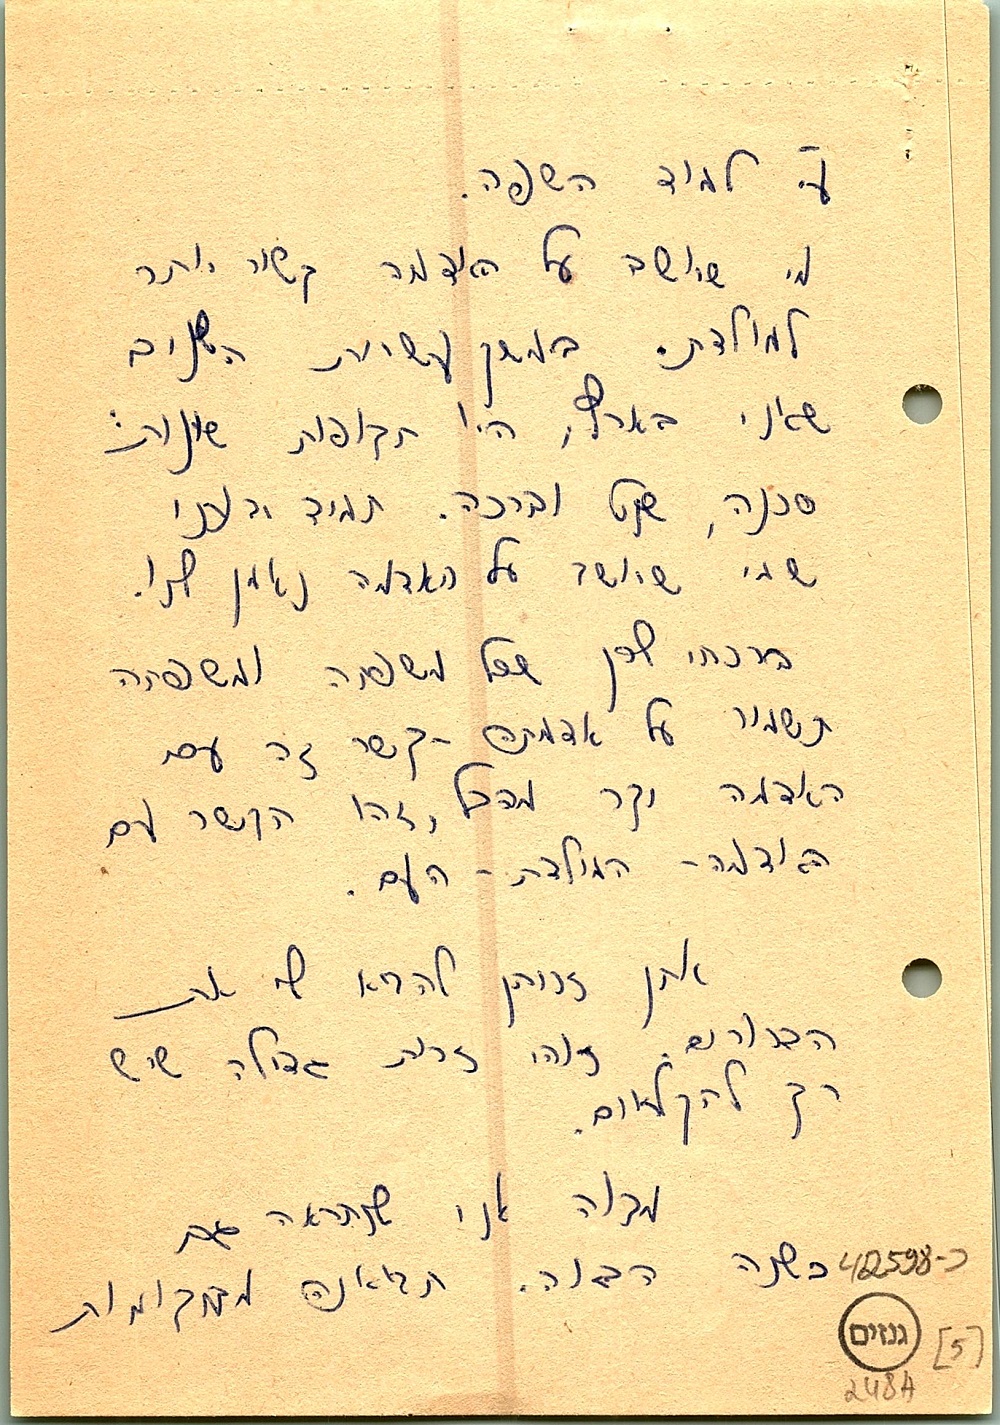 ע"י לימוד השפה.
מי שיושב על האדמה קשור יותר
למולדת. במשך עשרות השנים
שאני בארץ, היו תקופות שונות:
סכנה, שקט וברכה. תמיד ידעתי
שמי שיושב על האדמה נאמן לנו.
ברכתי לכן שכל משפחה ומשפחה
תשמור על אדמתם - קשר זה עם
האדמה יקר מהכל, זהו הקשר עם
האדמה - המולדת - העם.
אתן זכיתן להביא לי את
הבכורים. זוהי זכות גדולה שיש
רק לחקלאים.
מקוה אני שנתראה גם
בשנה הבאה. תבאנה ממקומות
42598-כ
גנזים
[5]
248A